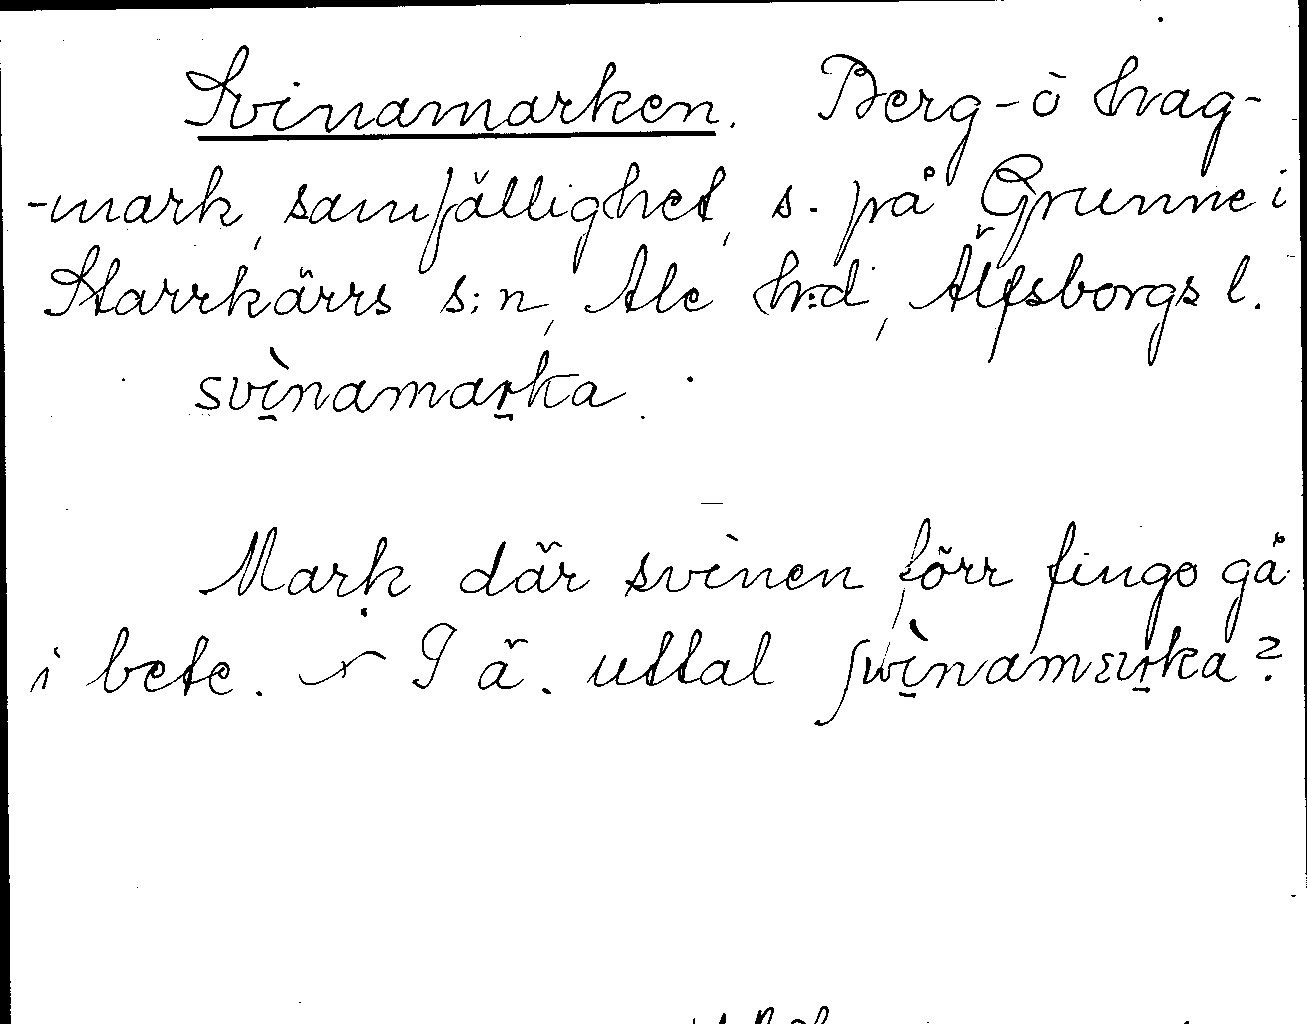 Svinamarken. Berg- o hag-
-mark, samfällighet, s. på Grunne i
Starrkärrs s:n, Ale h:d, Älfsborgs l.
svìnamarka.
Mark där svinen förr fingo gå
i bete. I ä. uttal